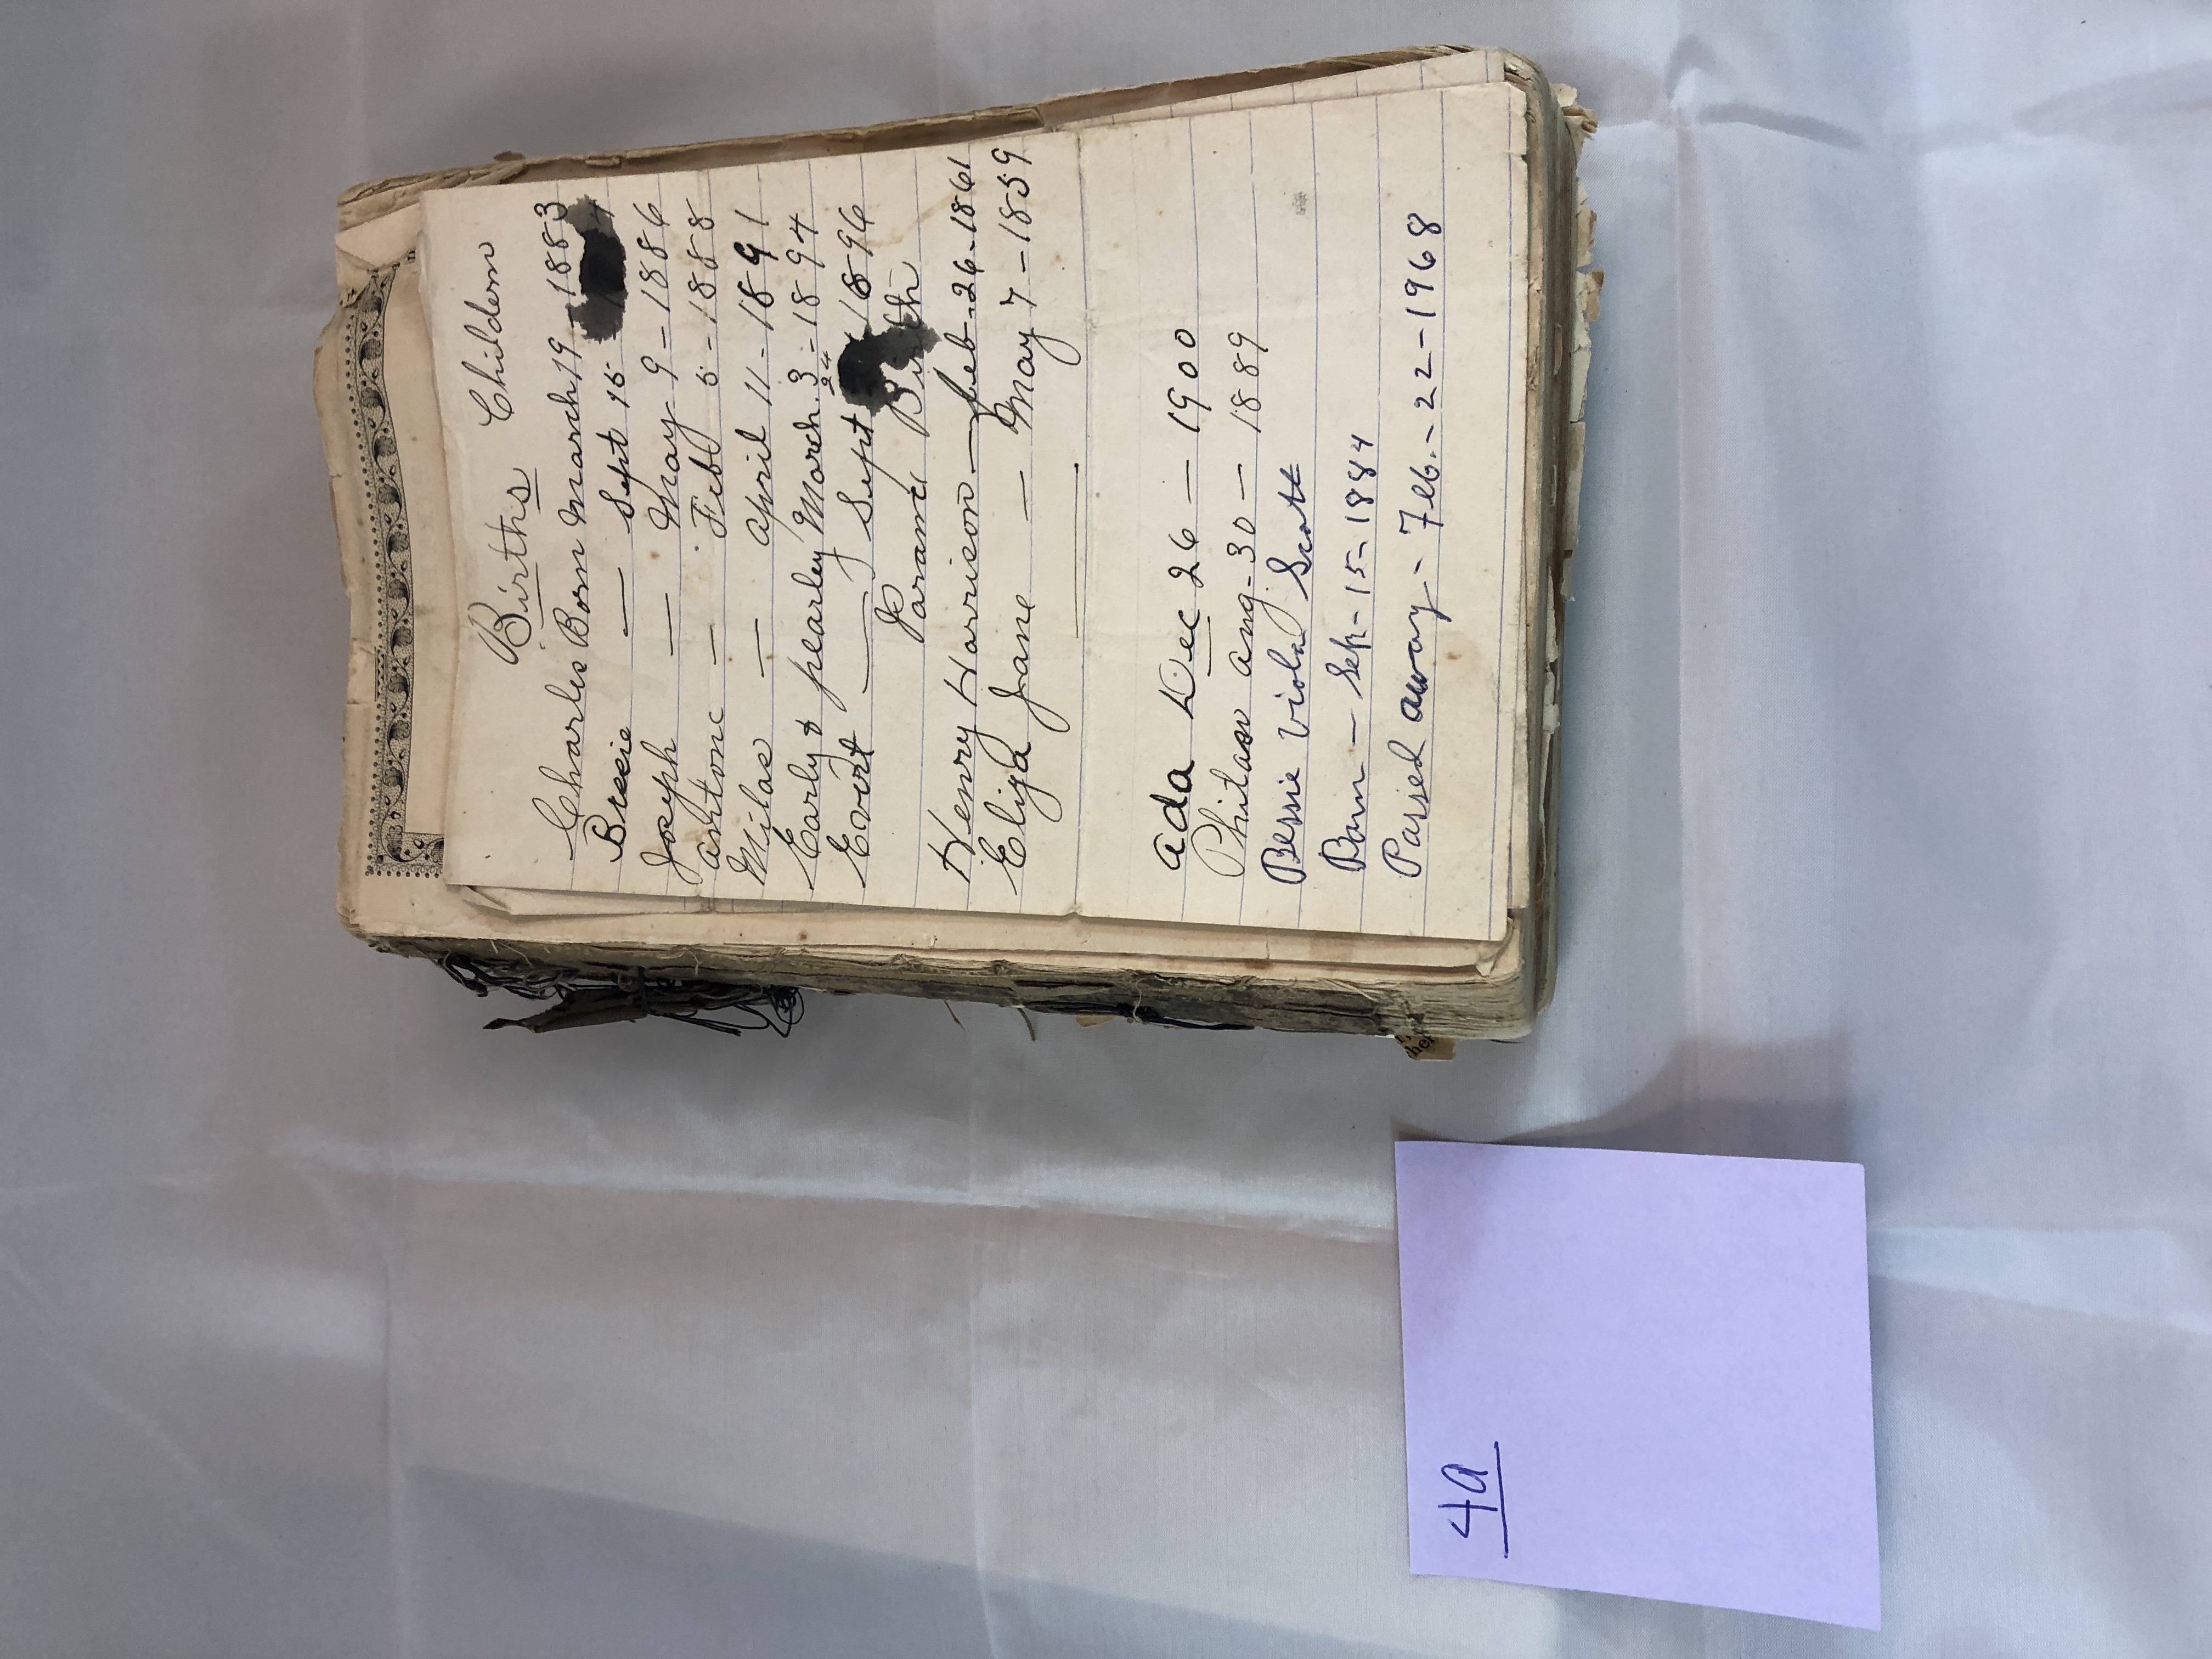 Births Childern
Charles Born March 19 - 1883
Bessie — Sept 15 4
Joseph — May 9 - 1886
Antone — Feb 5 - 1888
Milas — April 11 - 1891
Early & pearley March. 3 - 1894
24
Evert — Sept 1896
Birth
Henry Harrison — Feb - 26 - 1861
Eliza Jane — May 7 - 1859
Ada Dec 26 — 1900
Aug - 30 — 1889
Bessie Viola Scott
Born — Sep - 15 - 1884
Passed away - Feb. - 22 - 1968
4a